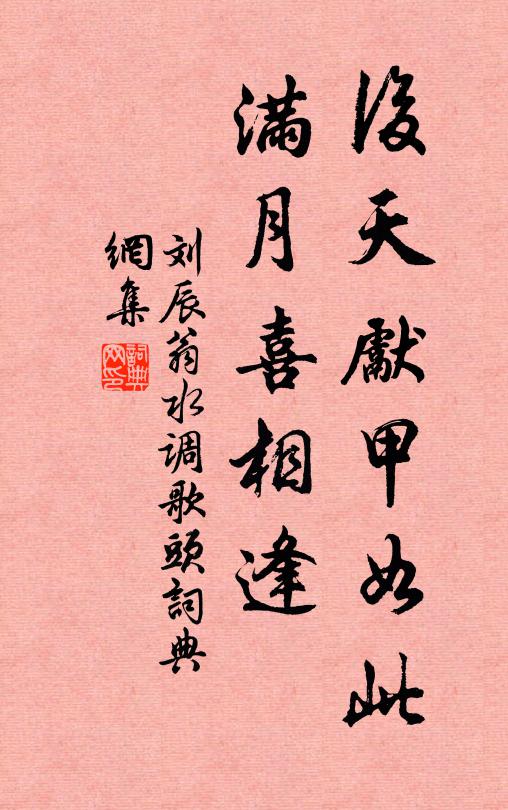 後天獻甲如此
滿月喜相逢
刘辰翁水调歌頭詞典
網集
詞典
网印